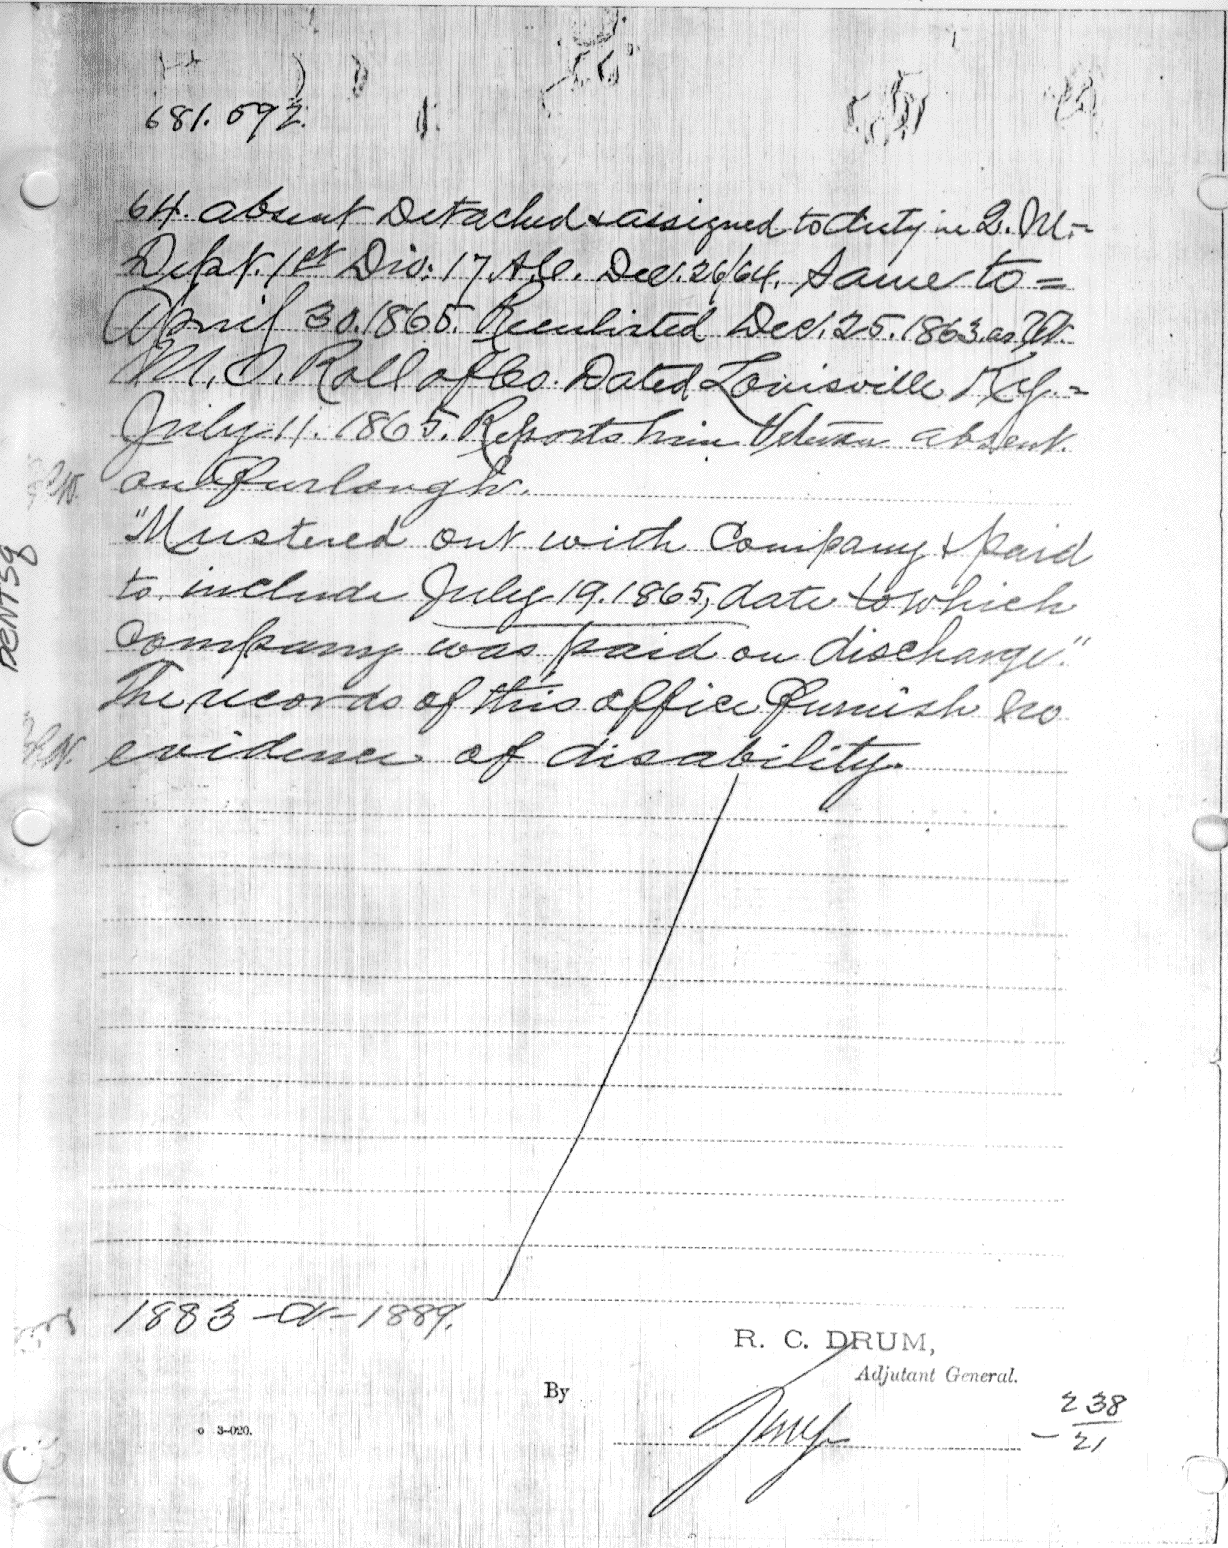 681.592.
64. absent Detached & assigned to duty in Q. M. -
Dept. 1st Div: 17. A.C. Dec. 26/64. Same to =
April 30. 1865. Reenlisted Dec. 25. 1863. as Vet.
M. O. Roll of Co. Dated Louisville Ky. =
July 11. 1865. Reports him Veteran absent.
on Furlough.
"Mustered out with Company & paid
to include July 19. 1865, date to which
Company was paid on discharge."
The records of this office furnish no
evidence of disability.
1883 - - 1889.
R. C. DRUM,
Adjutant General.
By
3-020.
238
- 21